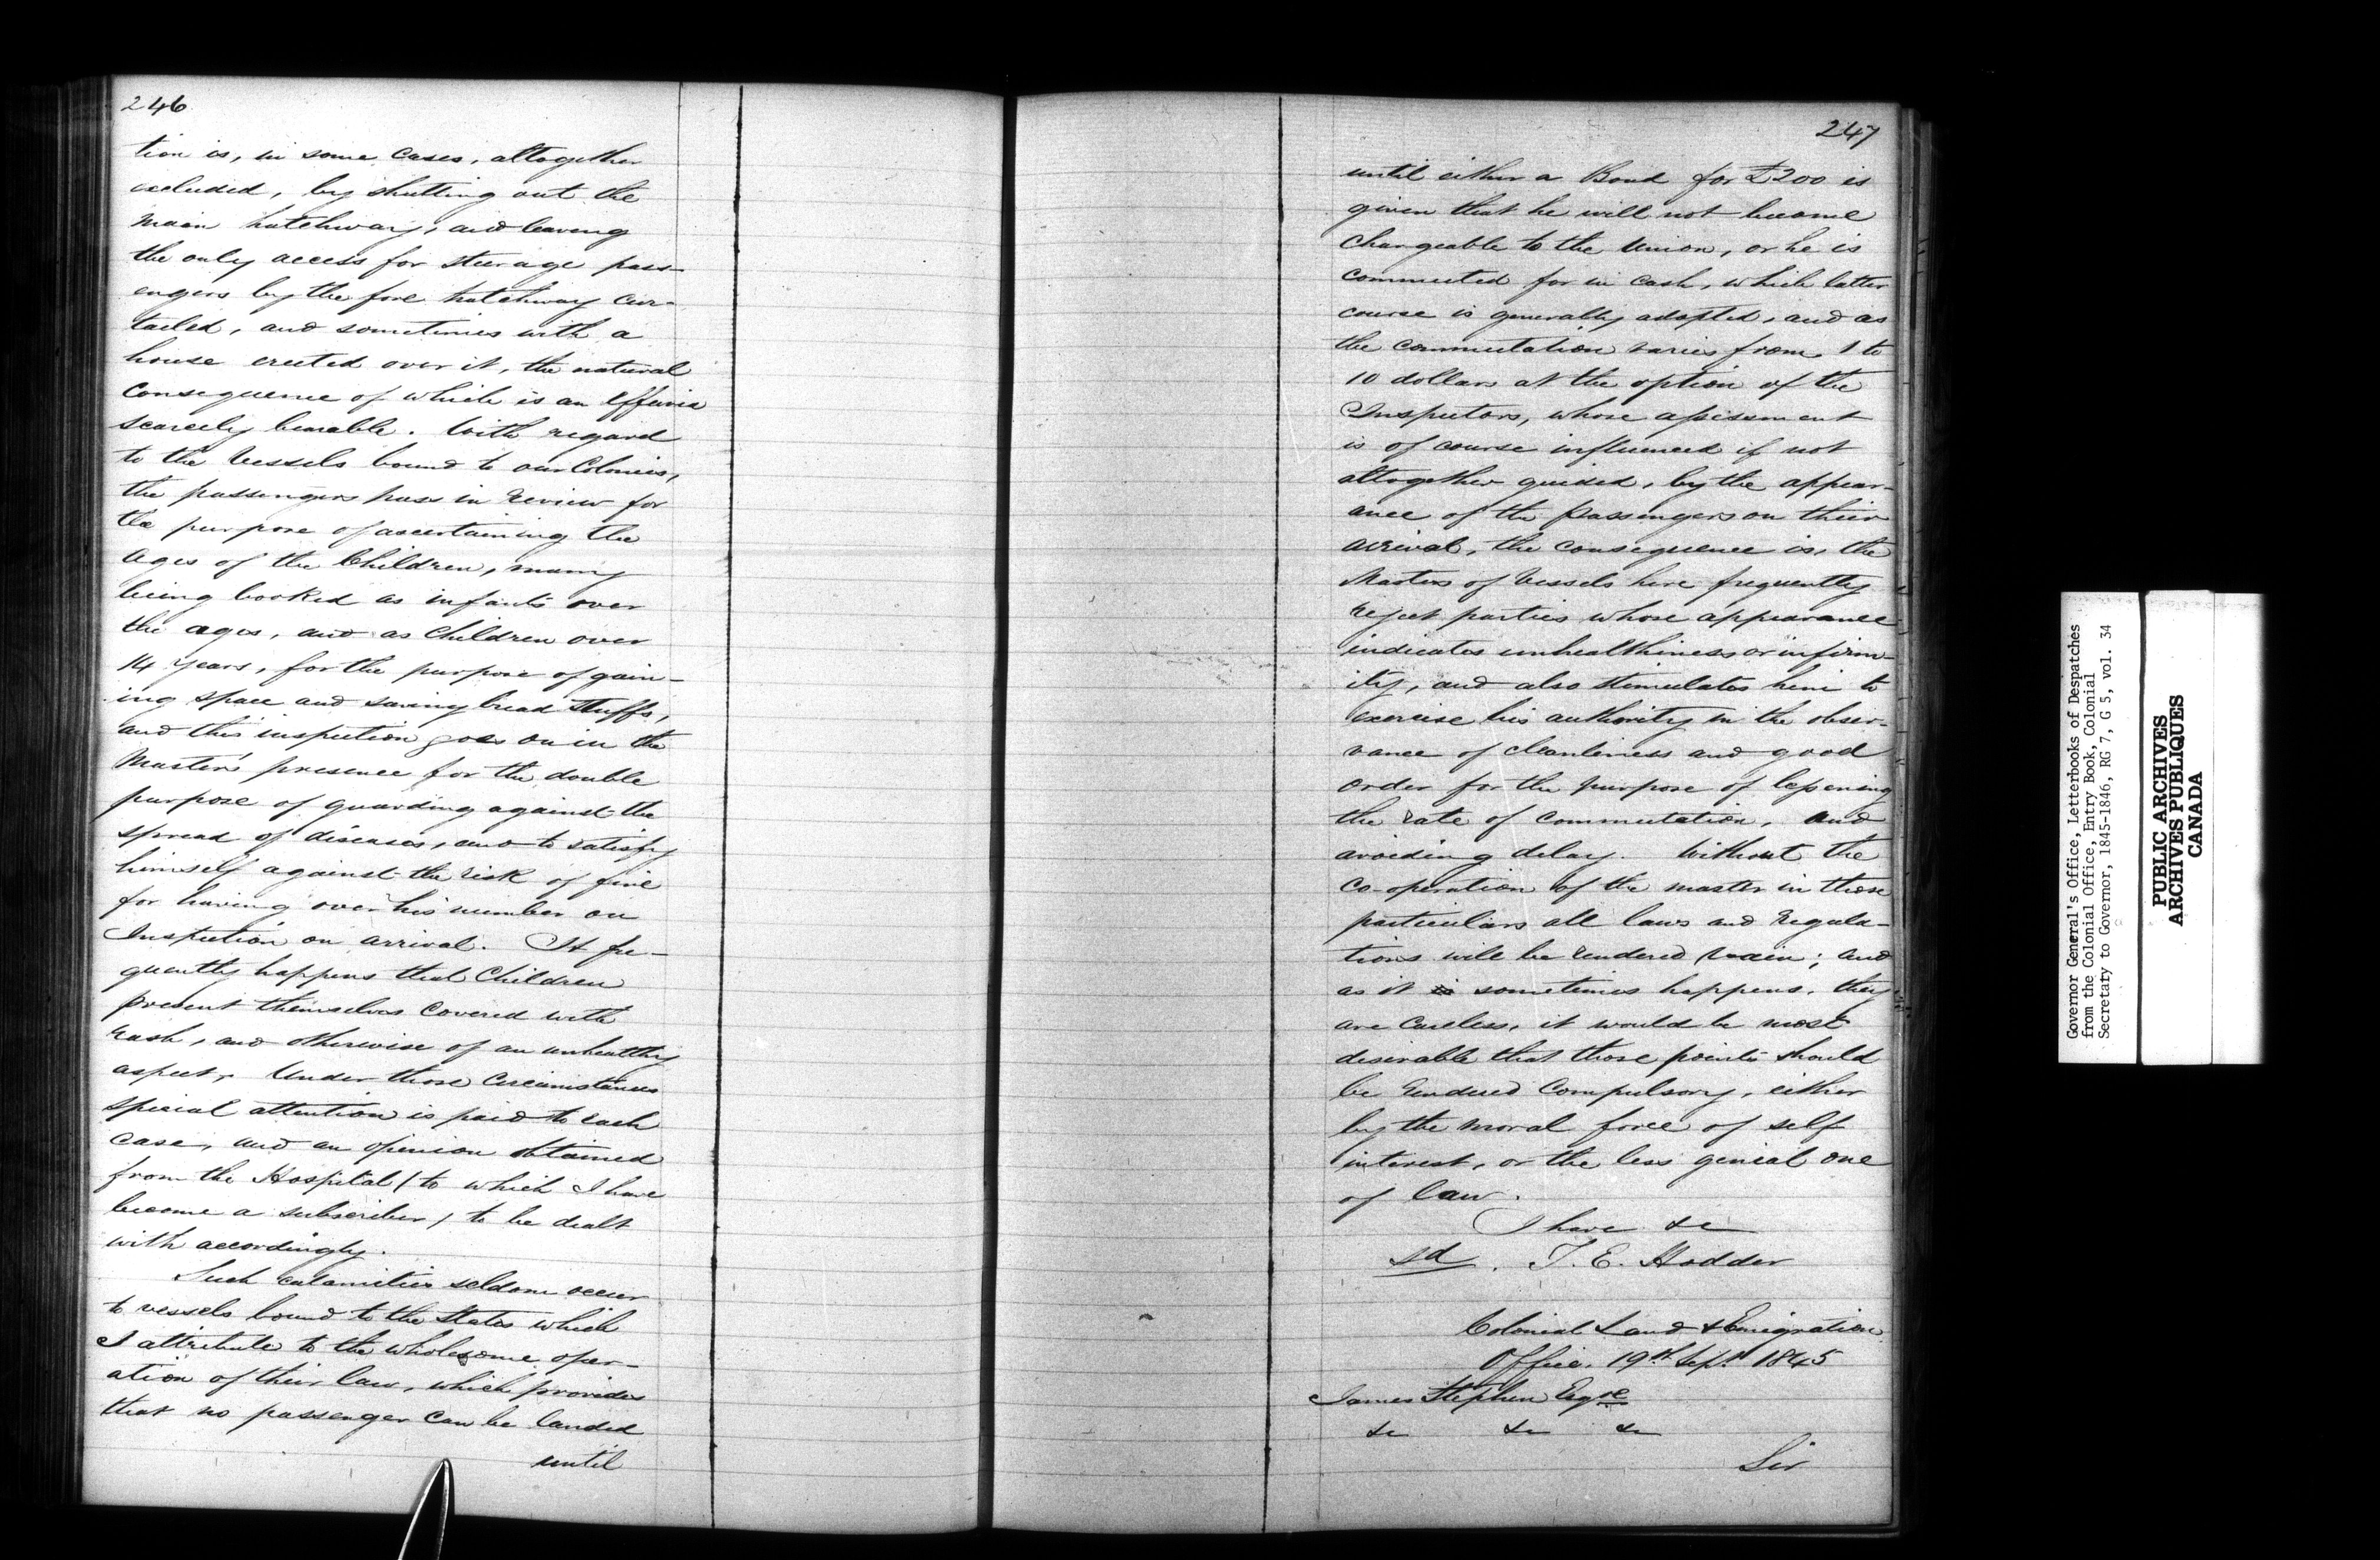 246
tion is, in some cases, altogether
excluded, by shutting out the
main hatchway, and leaving
the only access for steerage pass-
engers by the fore hatchway cur-
tailed, and sometimes with a
house erected over it, the natural
consequence of which is an effluvia
scarcely bearable. With regard
to the Vessels bound to our Colonies,
the passengers pass in review for
the purpose of ascertaining the
ages of the Children, many
being booked as infants over
the ages, and as Children over
14 years, for the purpose of gain-
ing space and saving bread stuffs,
and this inspection goes on in the
Master's presence for the double
purpose of guarding against the
spread of diseases, and to satisfy
himself against the risk of fine
for having over his number on
Inspection on arrival. It fre-
quently happens that Children
present themselves covered with
rash, and otherwise of an unhealthy
aspect. Under those Circumstances
special attention is paid to each
case, and an opinion obtained
from the Hospital / to which I have
become a subscriber / to be dealt
with accordingly.
Such calamities seldom occur
to vessels bound to the States which
I attribute to the wholesome oper-
ation of their law, which provides
that no passenger can be landed
until
247
until either a Bond for £200 is
given that he will not become
chargeable to the Union, or he is
commuted for in cash, which latter
course is generally adopted, and as
the commutation varies from 1 to
10 dollars at the option of the
Inspectors, whose
is of course influenced if not
altogether guided, by the appear-
ance of the Passengers on their
arrival, the consequence is, the
Masters of Vessels here frequently
reject parties whose appearance
indicates unhealthiness or infirm-
ity, and also stimulates him to
exercise his authority in the obser-
vance of cleanliness and good
order for the purpose of lessening
the rate of commutation, and
avoiding delay. Without the
Co-operation of the master in these
particulars all laws and regula-
tions will be rendered vain; and
as it is sometimes happens, they
are careless, it would be most
desirable that those points should
be rendered Compulsory, either
by the moral force of self
interest, or the less genial one
of law.
I have &c
sd. T. E. Hodder
Colonial Land & Emigration
Office. 19th Septr 1845
James Stephen Esqre
&c &c &c
Sir
Governor General's Office, Letterbooks of Despatches
from the Colonial Office, Entry Book, Colonial
Secretary to Governor, 1845-1846, RG 7, G 5, vol. 34
PUBLIC ARCHIVES
ARCHIVES PUBLIQUES
CANADA